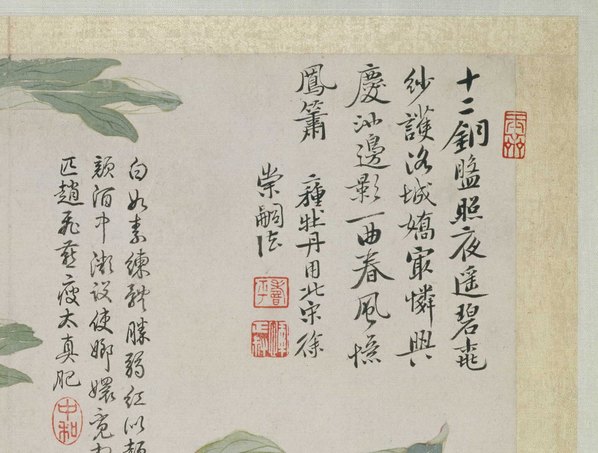 十二銅盤照夜遙碧桃
紗護洛城嬌最憐興
慶池邊影一曲春風憶
鳳簫 種牡丹用北宋徐
崇嗣法
壽平
白如素練勝弱紅似
顏酒中微設使嬛竟
匹趙飛燕瘦太真肥
中和